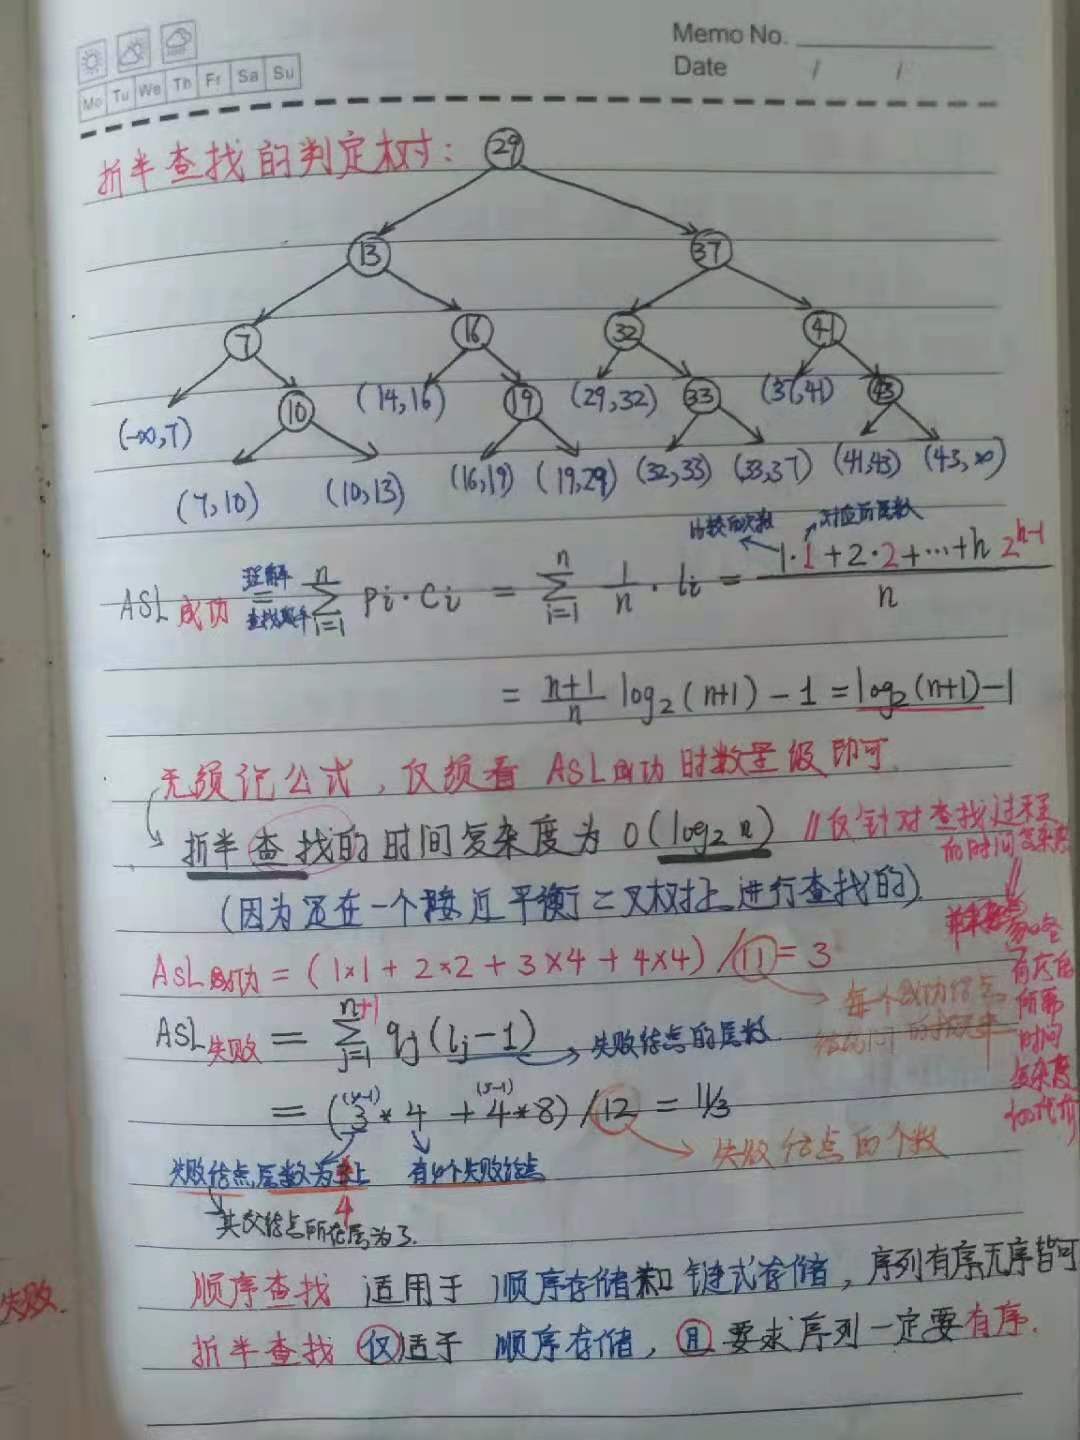 Memo No.
Date / /
Mo Tu We Th Fr Sa Su
折半查找的判定树:
29
13 37
7 16 32 41
(-∞,7) 10 (14,16) 19 (29,32) 33 (37,41) 43
(7,10) (10,13) (16,19) (19,29) (32,33) (33,37) (41,43) (43,∞)
比较的次数 对应所层数
ASL成功 = \sum_{i=1}^{n} pi·ci = \sum_{i=1}^{n} \frac{1}{n}·li = \frac{1·1+2·2+…+h 2^{h-1}}{n}
= \frac{n+1}{n} log₂(n+1)-1 = log₂(n+1)-1
无须记公式,仅须看 ASL成功 时数量级即可
折半查找的时间复杂度为 O(log₂n) //仅针对查找过程
的时间复杂度
(因为是在一个接近平衡二叉树上进行查找的)
ASL成功 = (1×1+2×2+3×4+4×4)/11=3
ASL失败 = \sum_{j=1}^{n+1} qj(lj-1) → 失败结点的层数
(4-1) (5-1)
= (3*4 + 4*8)/12 = 11/3
失败结点的个数
失败结点层数为 4 有4个失败结点
其父结点所在层为3.
顺序查找 适用于 顺序存储和链式存储,序列有序无序皆可
失败.
折半查找 仅适于 顺序存储,且要求序列一定要有序.